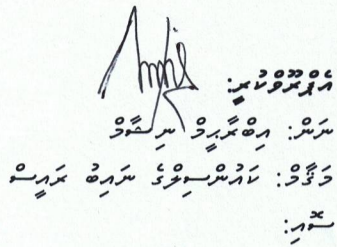 އެޕްރޫވްކުރީ:
ނަން: އިބްރާހީމް ނިޝާމް
މަޤާމް: ކައުންސިލްގެ ނައިބު ރައީސް
ސޮއި: